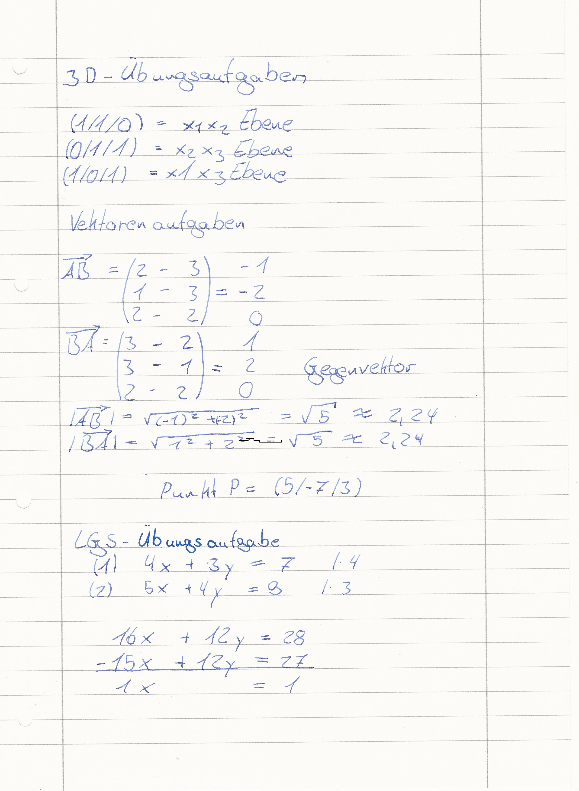 3D-Übungsaufgaben
(1/1/0) = x1x2 Ebene
(0/1/1) = x2x3 Ebene
(1/0/1) = x1x3 Ebene
Vektorenaufgaben
AB = (2 - 3) -1
(1 - 3) = -2
(2 - 2) 0
BA = (3 - 2) 1
(3 - 1) = 2 Gegenvektor
(2 - 2) 0
|AB| = √(-1)² + (-2)² = √5 ≈ 2,24
|BA| = √1² + 2² = √5 ≈ 2,24
Punkt P = (5/-7/3)
LGS-Übungsaufgabe
(1) 4x + 3y = 7 |·4
(2) 5x + 4y = 9 |·3
16x + 12y = 28
-15x + 12y = 27
1x = 1